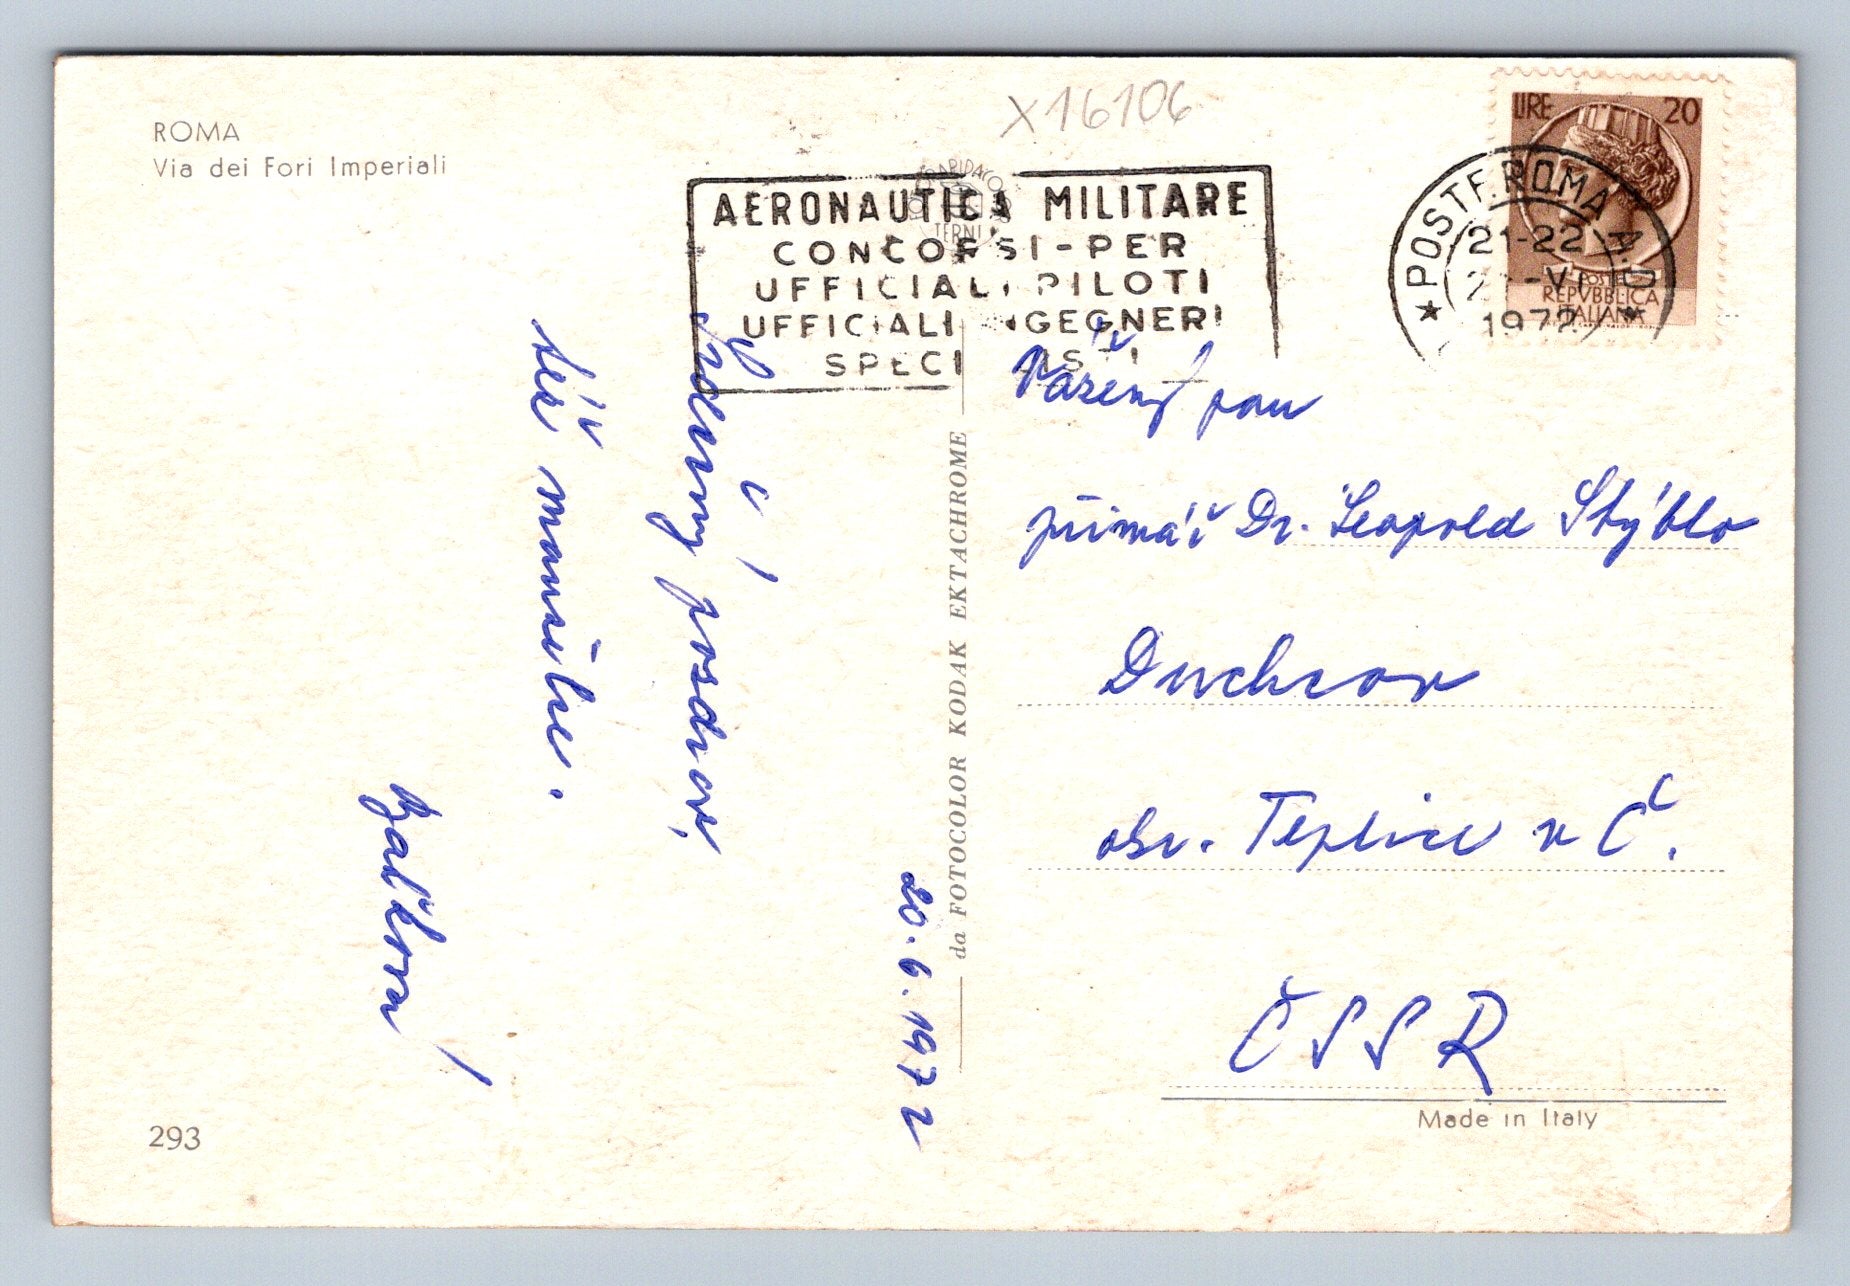 ROMA
Via dei Fori Imperiali
X16106
LIRE 20
POSTE
REPVBBLICA
ITALIANA
POSTE ROMA A.D
21-22
-VI
1972
AERONAUTICA MILITARE
CONCORSI-PER
UFFICIALI PILOTI
UFFICIALI INGEGNERI
SPECIALISTI
TERNI
Srdečný pozdrav,
též manželce.
Baťkovi
20.6.1972
da FOTOCOLOR KODAK EKTACHROME
Vážený pan
primář Dr. Leopold Stýblo
Duchcov
okr. Teplice v Č.
ČSSR
Made in Italy
293